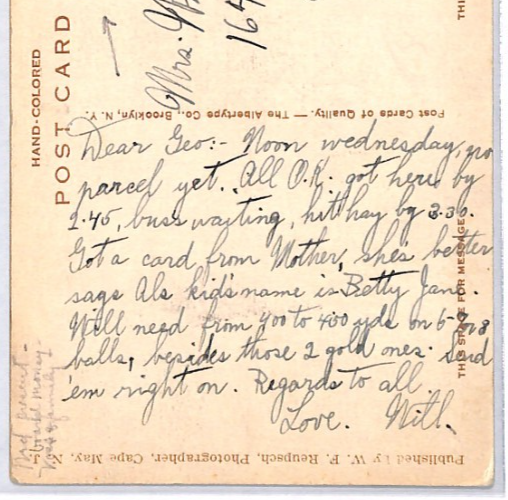 HAND-COLORED
POST CARD
Mrs.
164
Post Cards of Quality. — The Albertype Co., Brooklyn, N. Y.
Dear Geo:- Noon wednesday, no
parcel yet. All O.K. got here by
2.45, buss waiting, hit hay by 3.30.
Got a card from Mother, she's better
says Als kid's name is Betty Jane.
Will need from 300 to 400 yds on 6-7 or 8
balls, besides those 2 gold ones. Send
'em right on. Regards to all
Love. Will.
THIS SPACE FOR MESSAGE
THI
present -
money -
family
Published by W. F. Reupsch, Photographer, Cape May, N.